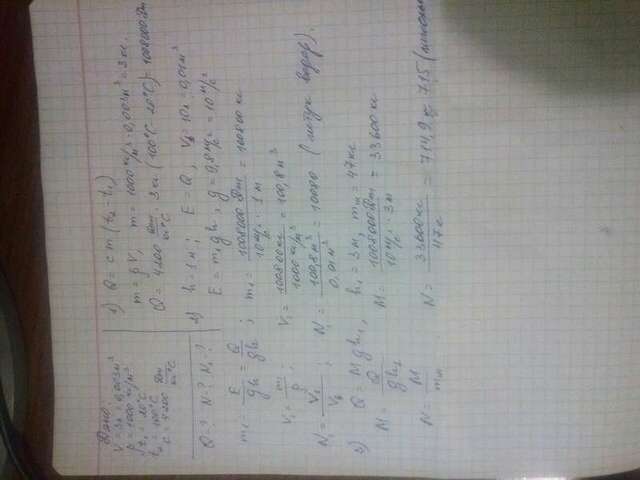 Дано:
V = 3л = 0,003м³
ρ = 1000 кг/м³
t₁ = 20°C
t₂ = 100°C
c = 4200 Дж/кг°C
Q - ? N - ? N₁ - ?
1) Q = cm(t₂ - t₁)
m = ρV, m = 1000 кг/м³ · 0,003м³ = 3кг.
Q = 4200 Дж/кг°C · 3кг · (100°C - 20°C) = 1008000 Дж
2) h = 1м; E = Q, V₂ = 10л = 0,01м³
E = m₁gh, g = 9,8 м/с² = 10 м/с²
m₁ = E/gh = Q/gh; m₁ = 1008000Дж / 10м/с² · 1м = 100800 кг
V₁ = m₁/ρ; V₁ = 100800кг / 1000кг/м³ = 100,8м³
N₁ = V₁/V₂; N₁ = 100,8м³ / 0,01м³ = 10080 ведер).
3) Q = Mgh₁, h₁ = 3м, = 47кг
M = Q/gh₁ M = 1008000Дж / 10м/с² · 3м = 33600кг
N = M/m N = 33600кг / 47кг = 714,9 ≈ 715